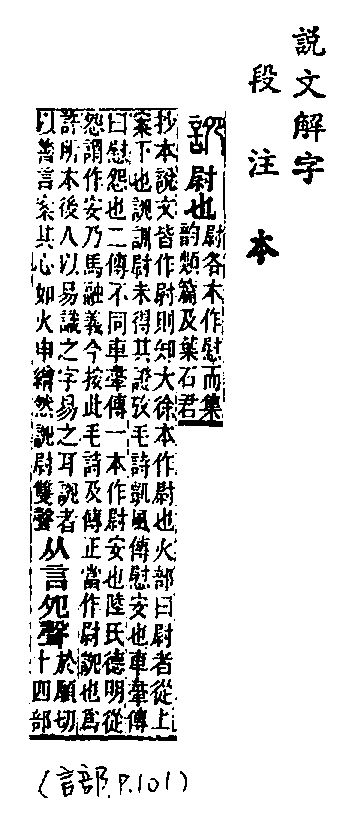 說文解字
段注本
䛄 尉也 尉各本作慰而集
韵類篇及葉石君
抄本說文皆作尉則知大徐本作尉也火部曰尉者從上
案下也䛄訓尉未得其證攷毛詩凱風傳慰安也車舝傳
曰慰怨也二傳不同車舝傳一本作尉安也陸氏德明從
怨謂作安乃馬融義今按此毛詩及傳正當作尉䛄也爲
許所本後人以易識之字易之耳䛄者
以善言案其心如火申繒然䛄尉雙聲 从言夗聲 於願切
十四部
(言部.P.101)